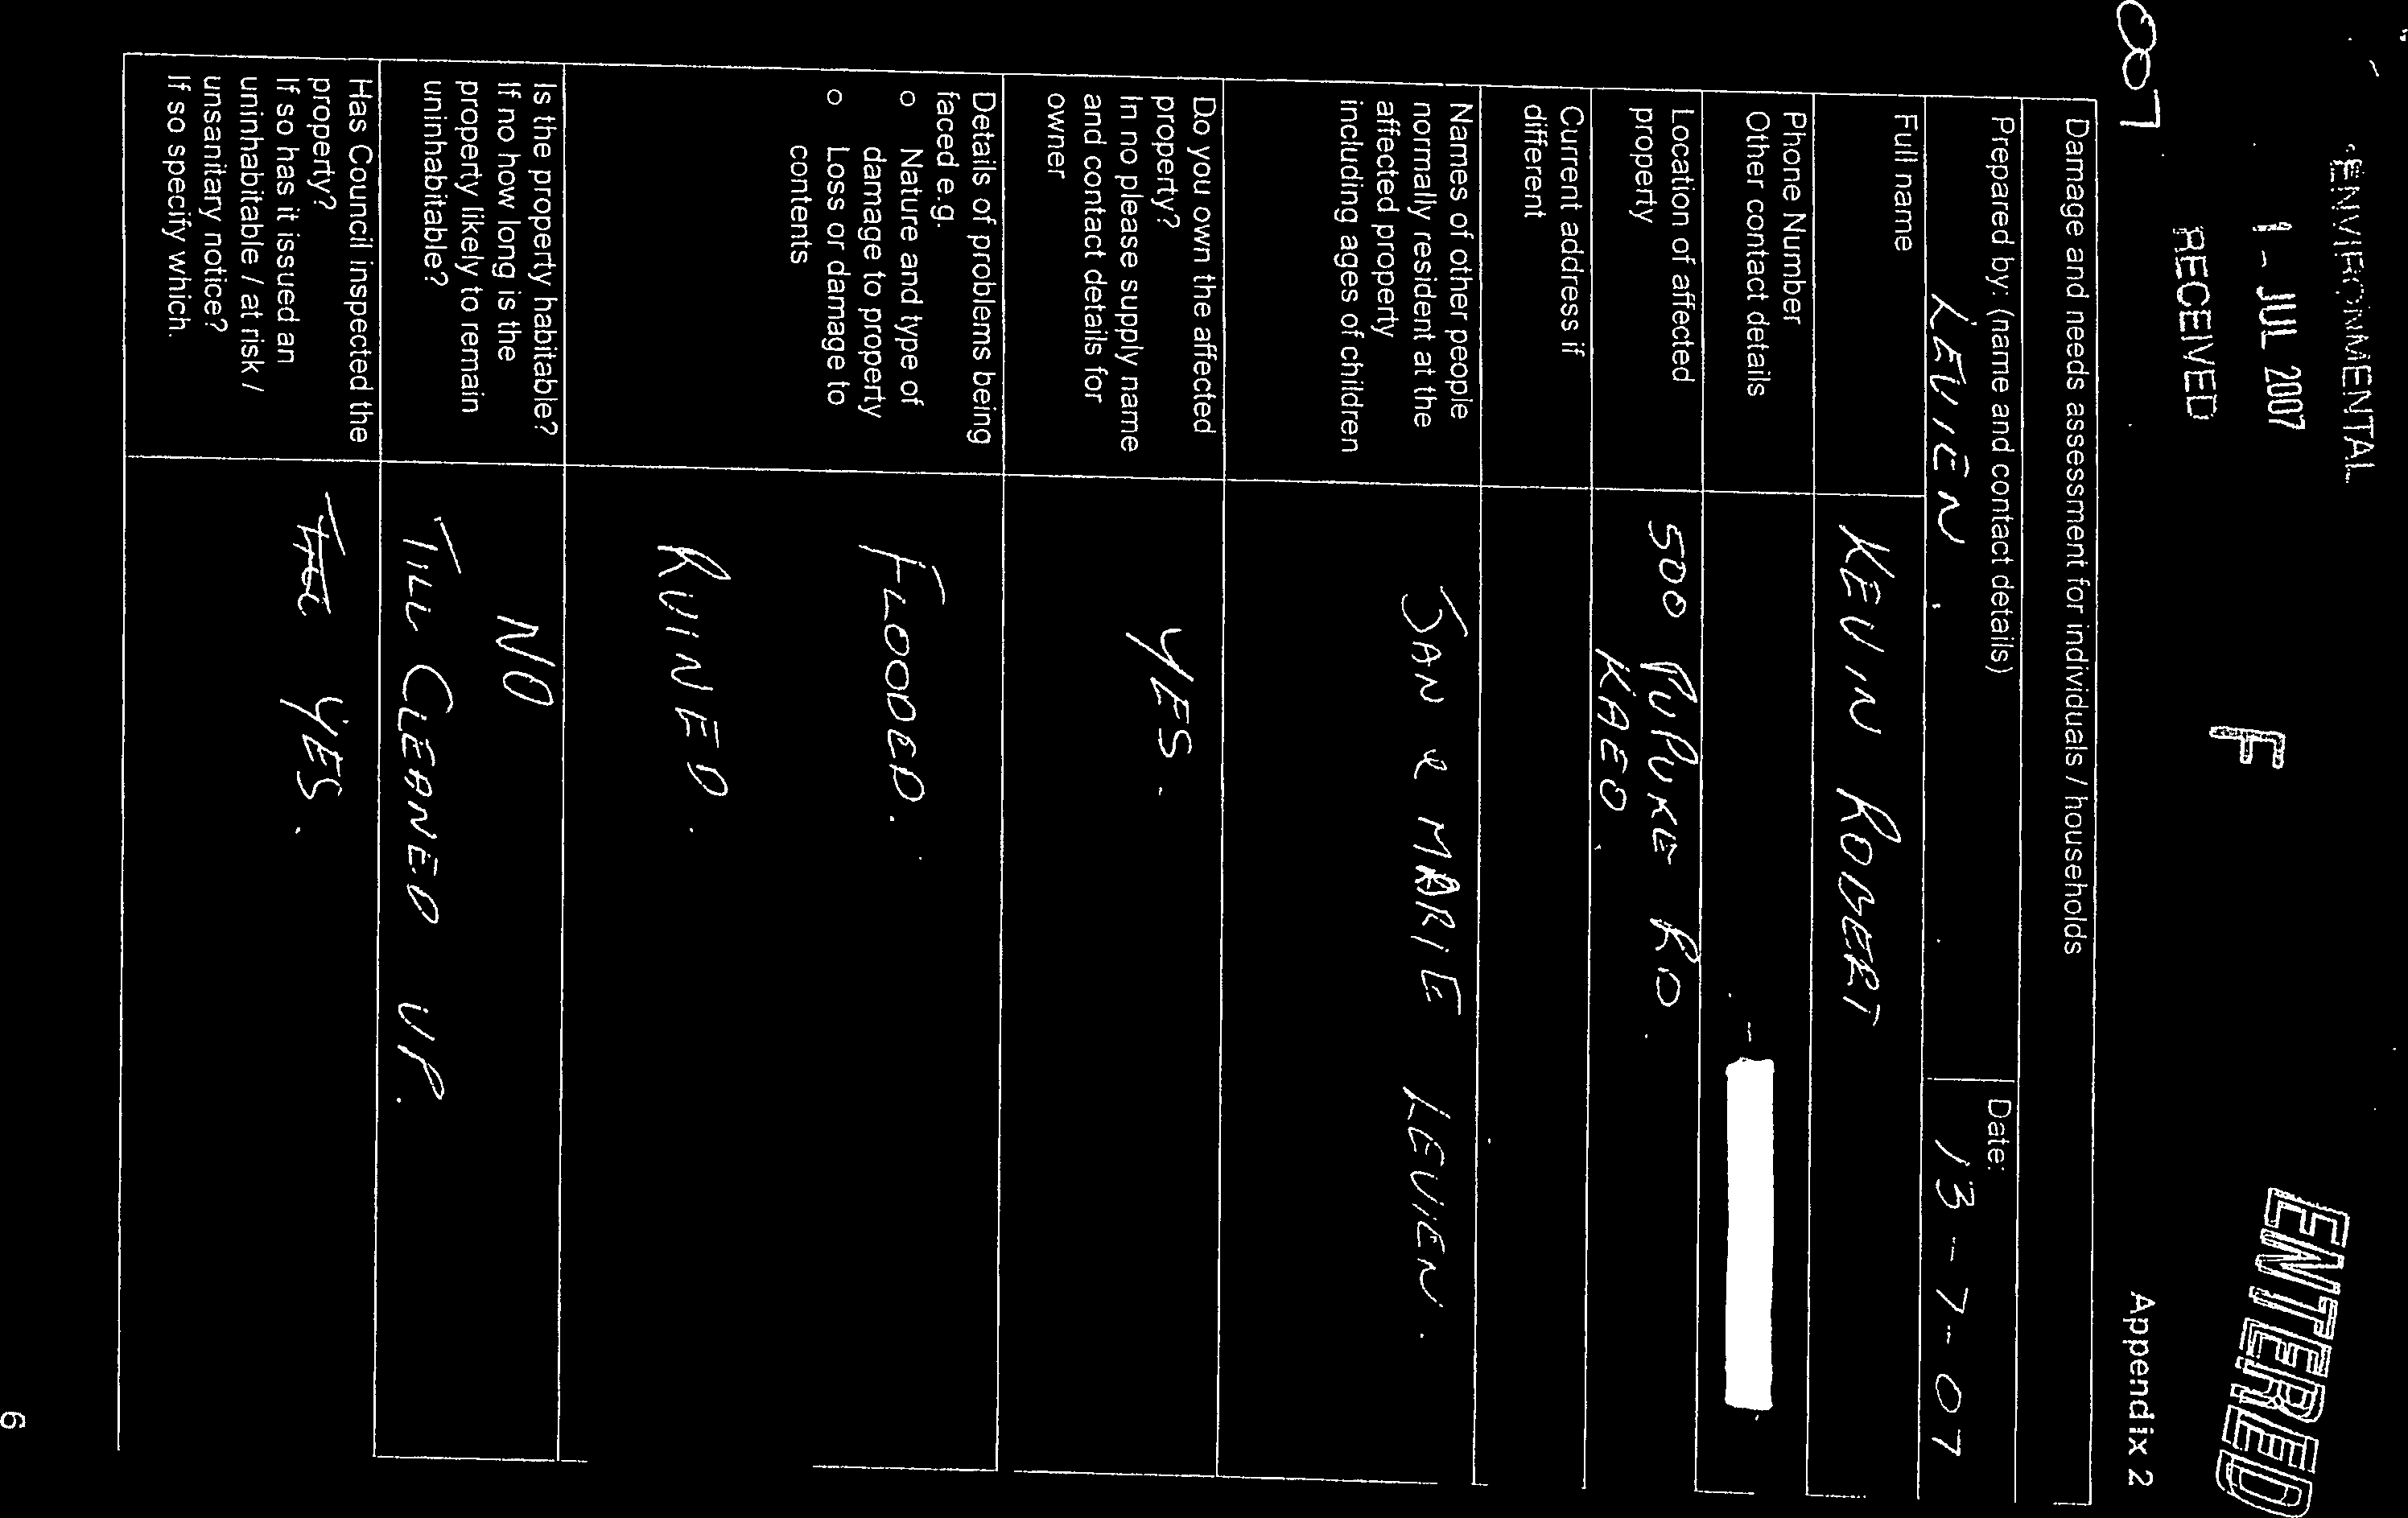 ENVIRONMENTAL
1 - JUL 2007
RECEIVED
F
ENTERED
007
Appendix 2
Damage and needs assessment for individuals / households
Prepared by: (name and contact details)
LEVIEN.
Date:
13-7-07
Full name
KEVIN ROBERT
Phone Number
Other contact details
Location of affected
property
500 PUPUKE RD.
KAEO.
Current address if
different
Names of other people
normally resident at the
affected property
including ages of children
JAN & MARIE LEVIEN.
Do you own the affected
property?
In no please supply name
and contact details for
owner
YES.
Details of problems being
faced e.g.
o Nature and type of
damage to property
o Loss or damage to
contents
FLOODED.
RUINED.
Is the property habitable?
If no how long is the
property likely to remain
uninhabitable?
NO
TILL CLEANED UP.
Has Council inspected the
property?
If so has it issued an
uninhabitable / at risk /
unsanitary notice?
If so specify which.
YES.
6